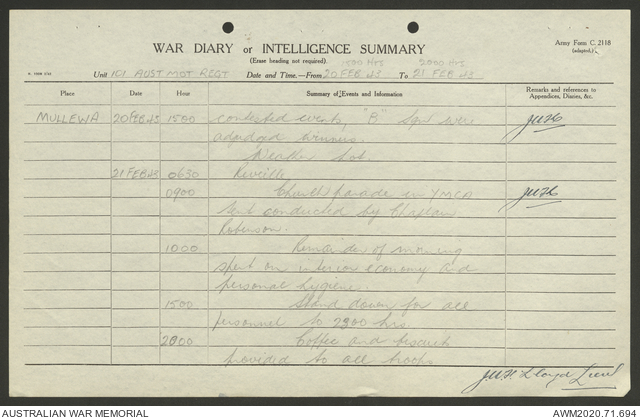 Army Form C. 2118
(adapted.)
WAR DIARY or INTELLIGENCE SUMMARY
(Erase heading not required). 1500 Hrs 2000 Hrs
Unit 101 AUST MOT REGT Date and Time.—From 20 FEB 43 To 21 FEB 43
Place Date Hour Summary of Events and Information Remarks and references to
Appendices, Diaries, &c.
MULLEWA 20 FEB 43 1500 contested events, "B" Sqn were
adjudged winners.
Weather hot.
21 FEB 43 0630 Reveille
0900 Church parade in YMCA
tent conducted by Chaplain
Roberson.
1000 Remainder of morning
spent on interior economy and
personal hygiene.
1500 Stand down for all
personnel to 2300 hrs.
2000 Coffee and biscuits
provided to all troops.
Lloyd Lieut
AUSTRALIAN WAR MEMORIAL AWM2020.71.694